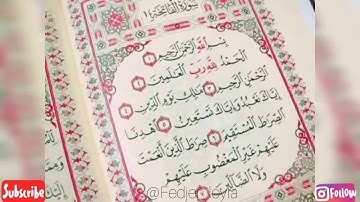 سورة الفاتحة
بِسْمِ اللَّهِ الرَّحْمَٰنِ الرَّحِيمِ ١
الْحَمْدُ لِلَّهِ رَبِّ الْعَالَمِينَ ٢
الرَّحْمَٰنِ الرَّحِيمِ ٣ مَالِكِ يَوْمِ الدِّينِ ٤
إِيَّاكَ نَعْبُدُ وَإِيَّاكَ نَسْتَعِينُ ٥ اهْدِنَا
الصِّرَاطَ الْمُسْتَقِيمَ ٦ صِرَاطَ الَّذِينَ أَنْعَمْتَ
عَلَيْهِمْ غَيْرِ الْمَغْضُوبِ عَلَيْهِمْ
وَلَا الضَّالِّينَ
Subscribe
Follow